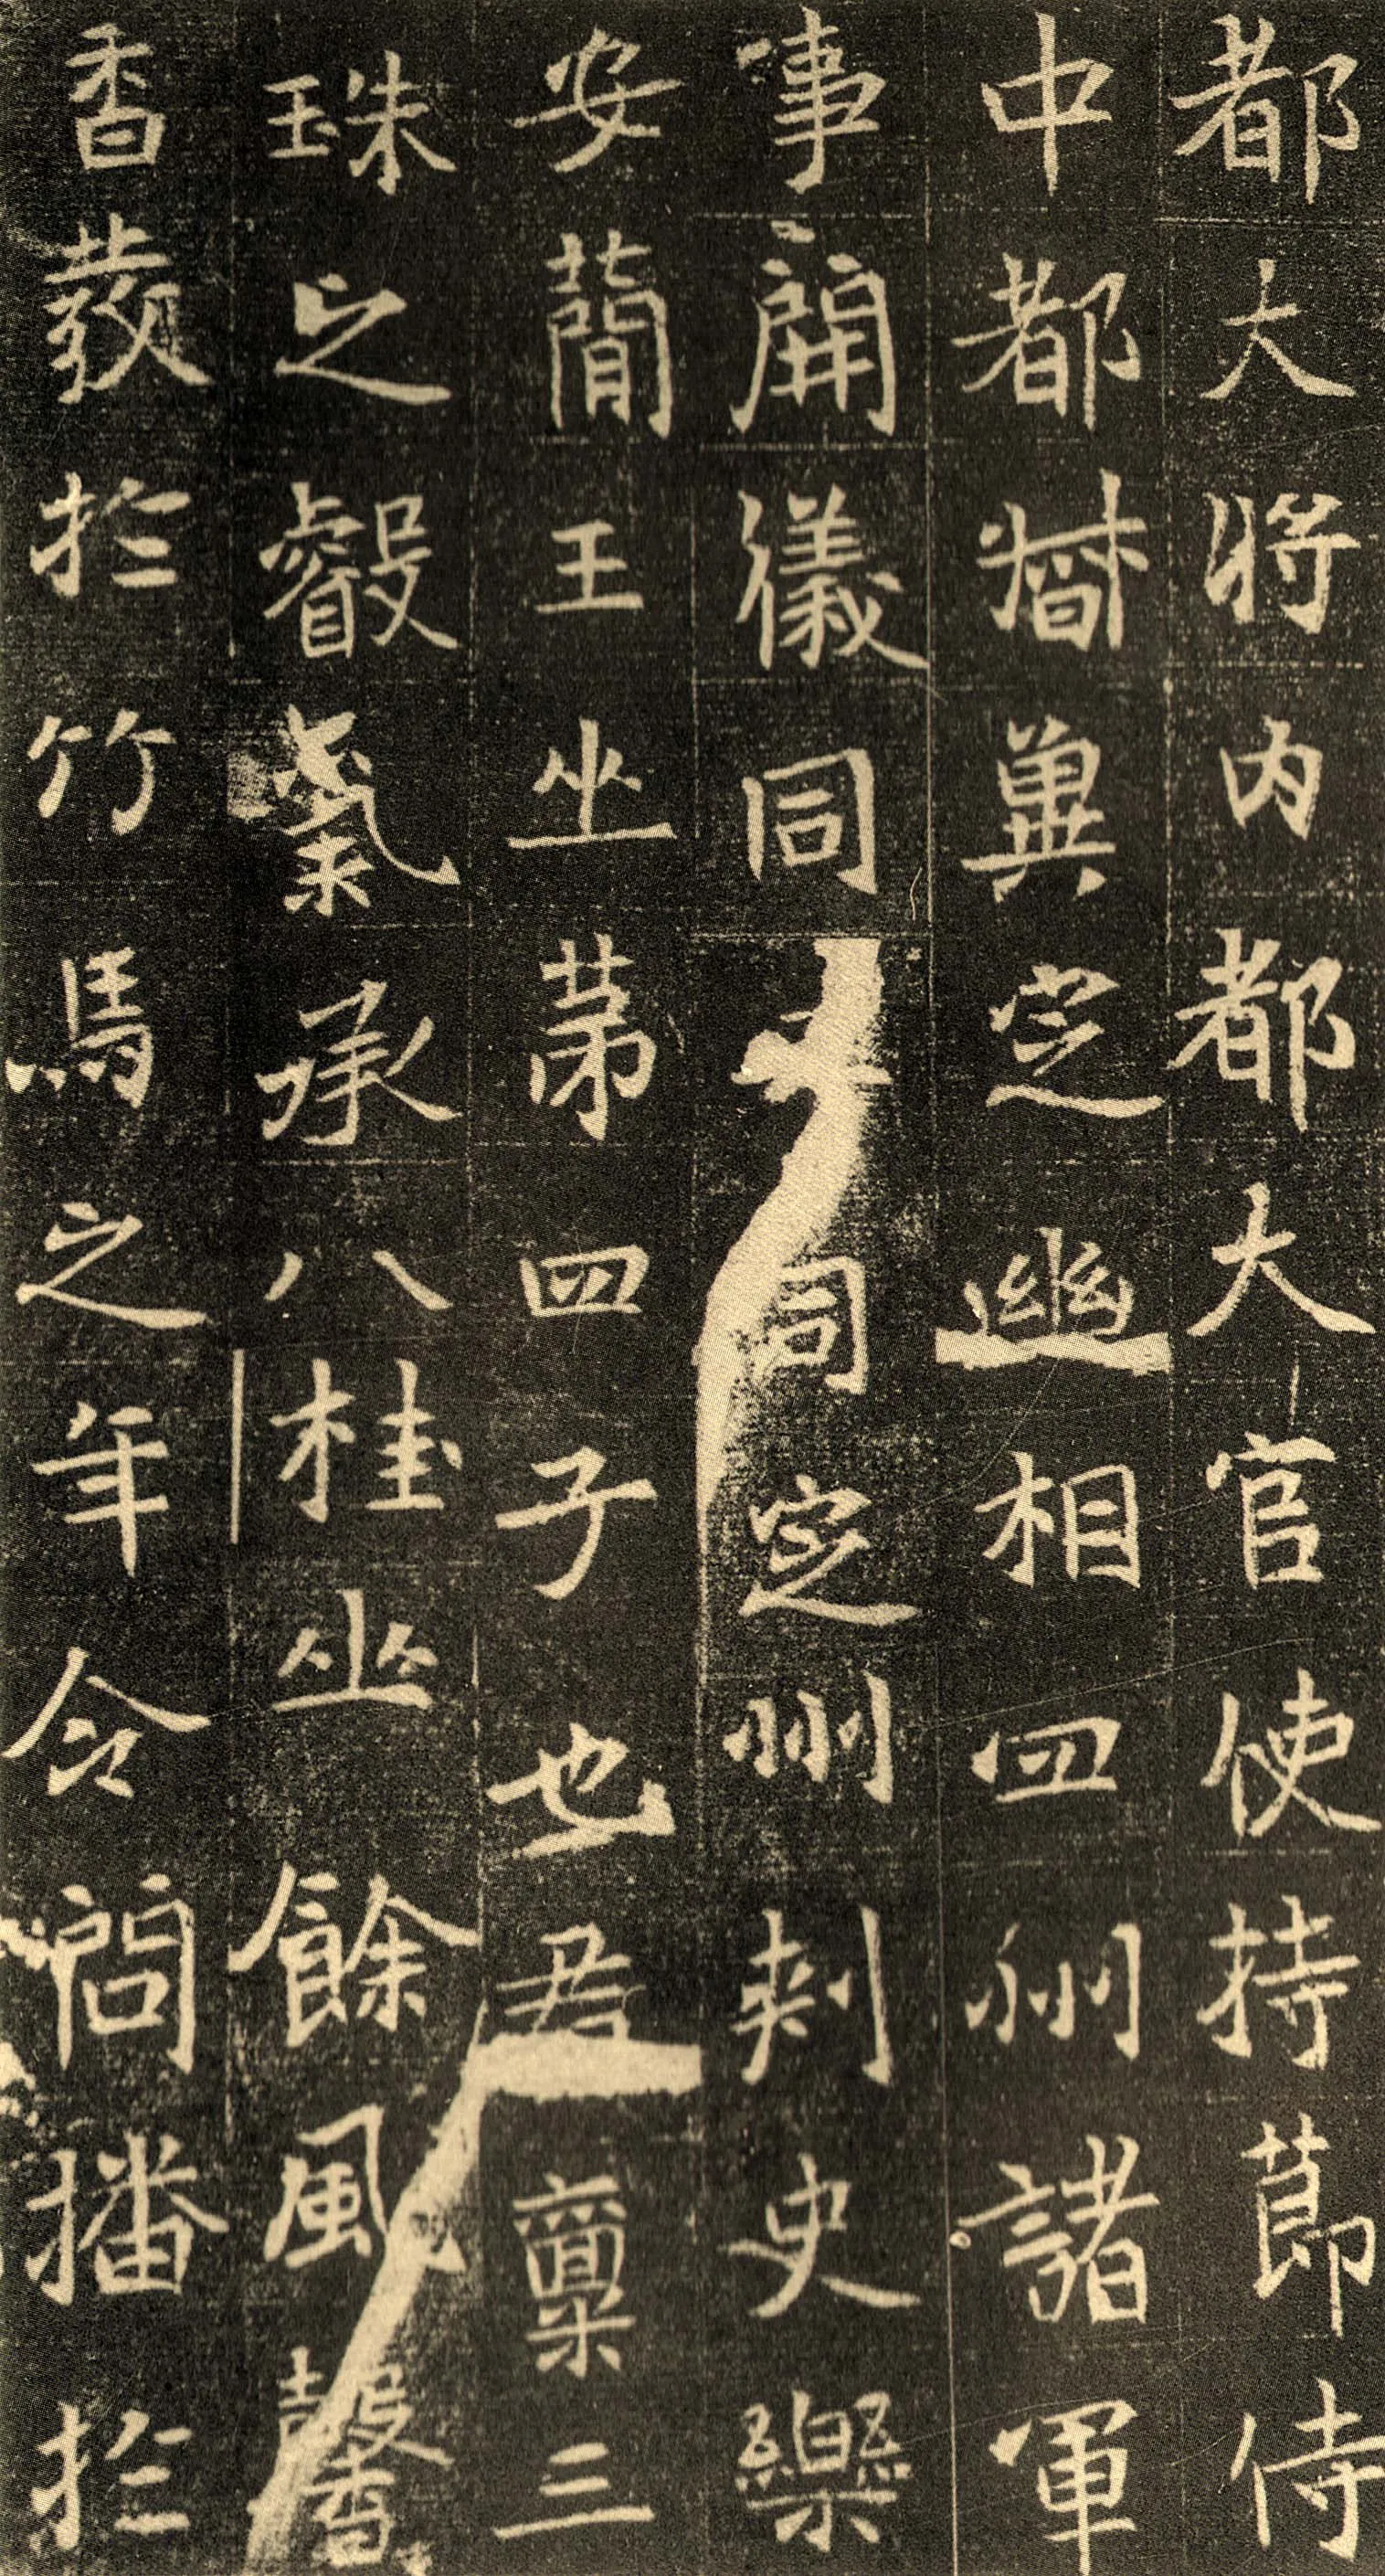 都大將内都大官使持節侍
中都督冀定幽相四州諸軍
事開儀同三司定州刺史樂
安簡王之第四子也君稟三
珠之叡氣承八桂之餘風馨
香發於竹馬之年令問播於